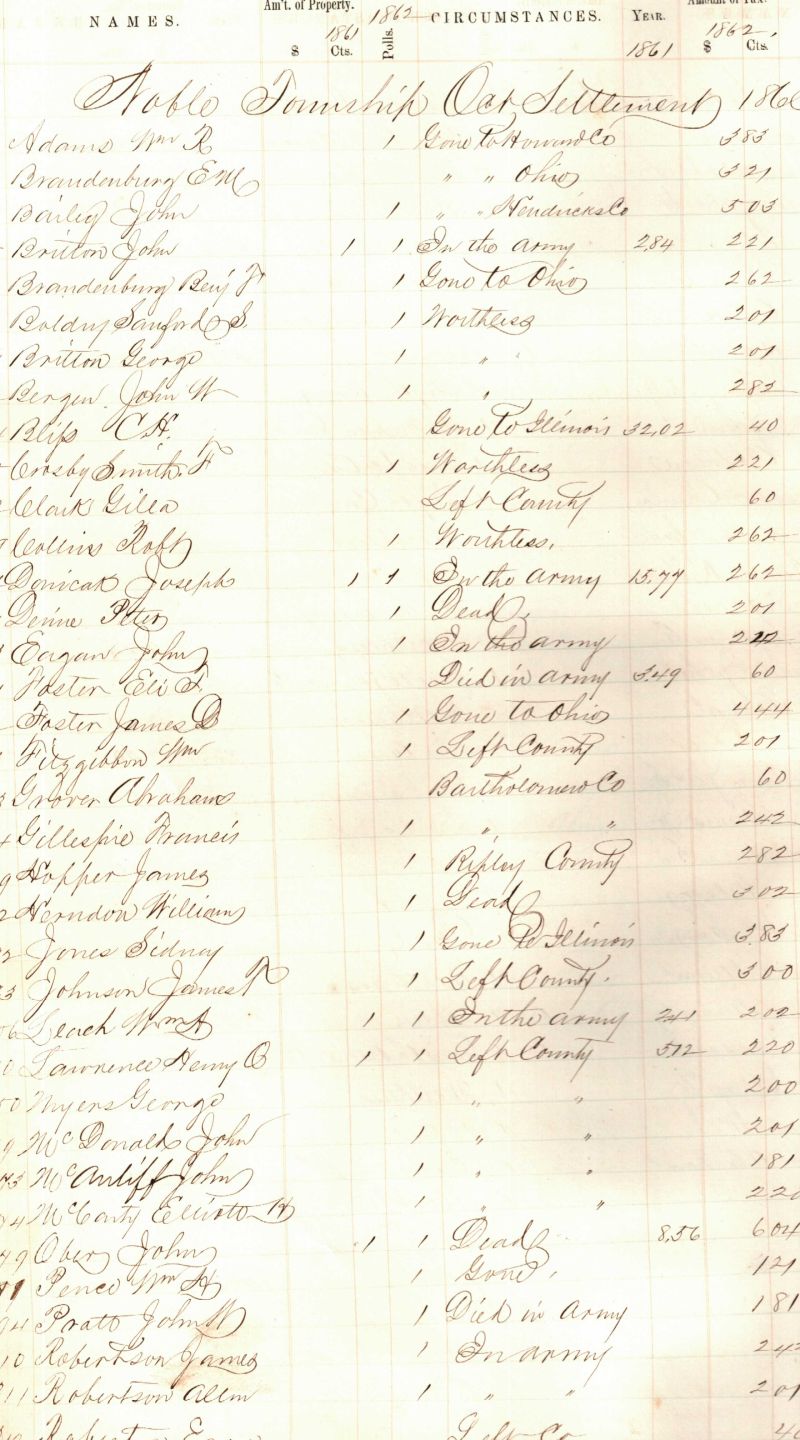 Am't. of Property. Amount of Tax.
NAMES. 1861 1862 CIRCUMSTANCES. YEAR. 1862,
$ Cts. Polls. 1861 $ Cts.
Noble Township Oct Settlement 186
Adams Wm R 1 Gone to Howard Co 383
Brandenburg E M " " Ohio 321
Bailey John 1 " " Hendricks Co 503
Britton John 1 1 In the army 2,84 221
Brandenburg Benj F 1 Gone to Ohio 262
Boldry Sanford S. 1 Worthless 201
Britton George 1 " " 201
Bergen John W 1 " 282
Bliss C.H. Gone to Illinois 32,02 40
Crosby Smith. F 1 Worthless 221
Clark Gilea Left County 60
Collins Robt 1 Worthless, 262
Donica Joseph 1 1 In the army 15,77 262
Devine Peter 1 Dead. 201
Eagan John 1 In the army
Foster Eli F Died in army 3,49 60
Foster James D 1 Gone to Ohio 444
Fitzgibbon Wm 1 Left County 201
Grover Abraham Bartholomew Co 60
Gillespie Francis 1 " " 242
Hopper James 1 Ripley County 282
Herndon William 1 Dead 302
Jones Sidney 1 Gone to Illinois 3,83
Johnson James 1 Left County. 300
Leach Wm A 1 1 In the army 241 202
Lawrence Henry O 1 1 Left County 512 220
Myers George 1 " " 200
McDonald John 1 " " 201
McAuliff John 1 " " 181
McCarty Elliott H 1 " " 220
Ober John 1 1 Dead 8,56 604
Pence Wm H 1 Gone, 121
Pratt John W 1 Died in Army 181
Robertson James 1 In army 242
Robertson Allen 1 " " 201
Left Co